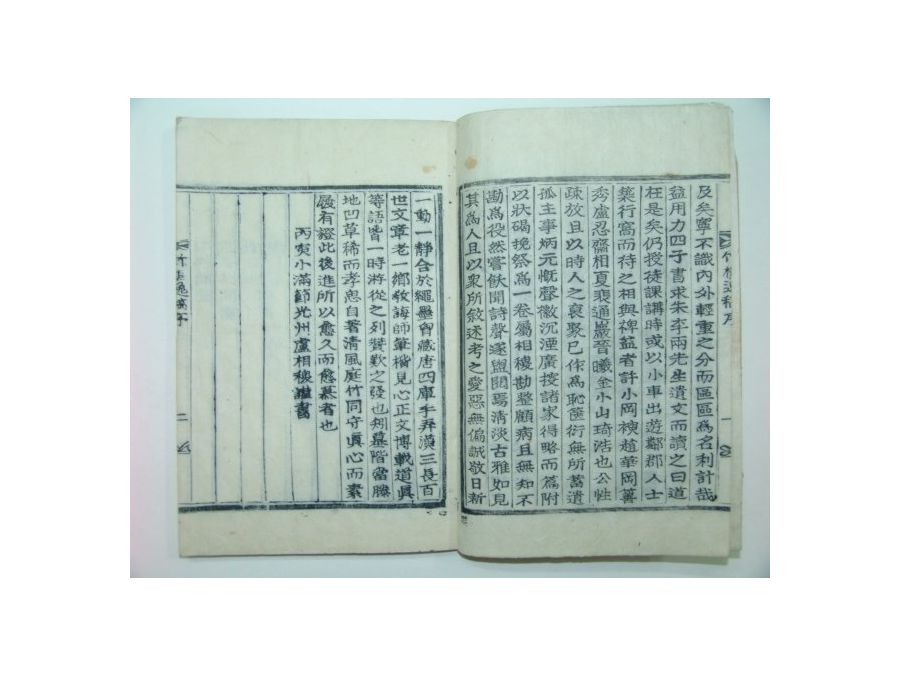 及矣寧不識內外輕重之分而區區爲名利計哉
益用力四子書求朱李兩先生遺文而讀之曰道
在是矣仍授徒課講時或以小車出遊鄰郡人士
築行窩而待之相與裨益者許小岡棟趙華岡篝
秀盧忍齋相夏裵通巖晉曦金小山琦浩也公性
疎放且以時人之裒聚已作爲恥篋衍無所蓄遺
孤主事炳元慨聲徽沉湮廣搜諸家得略而篇附
以狀碣挽祭爲一卷屬相稷勘整顧病且無知不
勘爲役然嘗飫聞詩聲遂盥閱焉淸淡古雅如見
其爲人且以衆所敘述考之愛惡無偏誠敬日新
一動一靜合於繩墨曾藏唐四庫手弄漢三長百
世文章老一鄉敎誨師筆楷見心正文博載道眞
等語皆一時游從之列贊歎之發也矧墓階當騰
地凹草稀而孝思自著淸風庭竹同守眞心而素
履有證此後進所以愈久而愈慕者也
丙寅小滿節光州盧相稷謹書